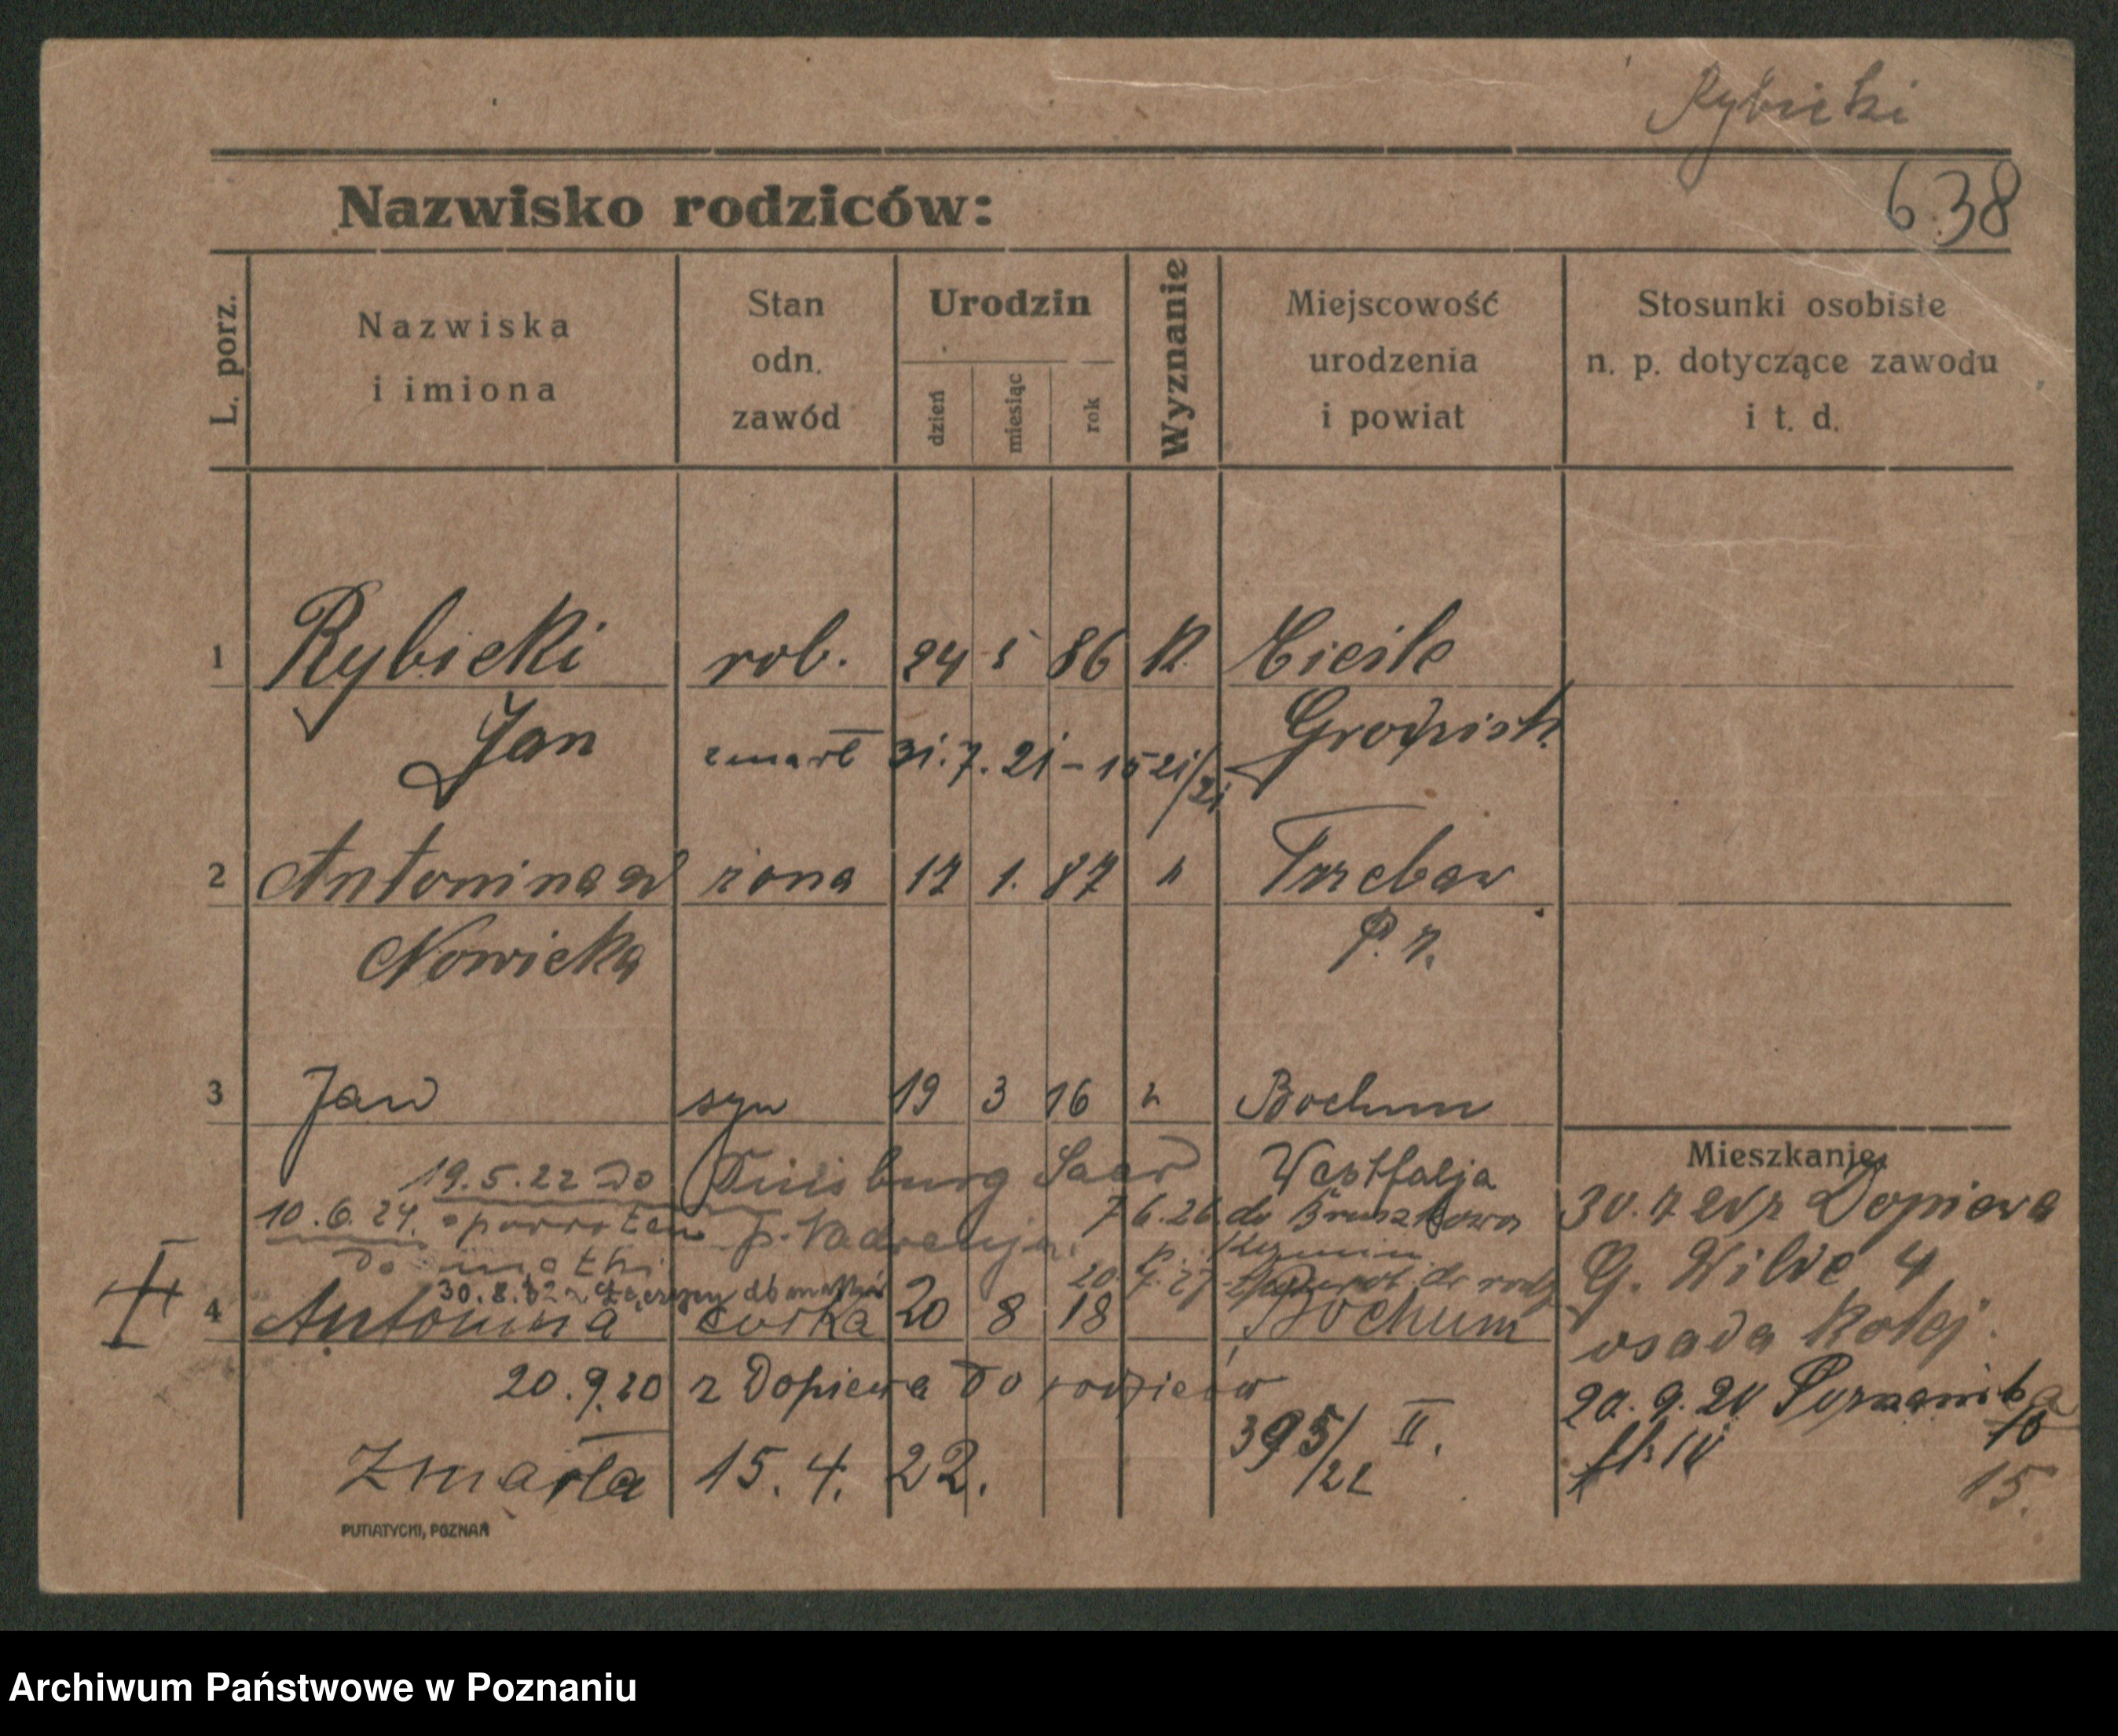 Rybicki
638
Nazwisko rodziców:
L. porz.
Nazwiska
i imiona
Stan
odn.
zawód
Urodzin
dzień
miesiąc
rok
Wyznanie
Miejscowość
urodzenia
i powiat
Stosunki osobiste
n. p. dotyczące zawodu
i t. d.
1 Rybicki rob. 24 5 86 K.
Jan zmarł 31.7.21 - 1521/21 Grodzisk
2 Antonina żona 17 1. 87 " Trzebaw
Nowicka P. z.
3 Jan syn 19 3 16 " Bochum
Westfalja
Mieszkanie:
19.5.22 do Duisburg Saar
10.6.24. z powrotem z Nadrenji
do matki
7.6.26 do
30.8.32 z do matki
20.7.27 do rodz
30.7.20 z Dopiewa
G. Wilde 4
osada kolej.
4 Antonina córka 20 8 18 Bochum
20.9.20 z Dopiewa do rodziców
20.9.20
10
15.
Zmarła 15.4.22. 395/22 II.
PUTIATYCKI, POZNAŃ
Archiwum Państwowe w Poznaniu